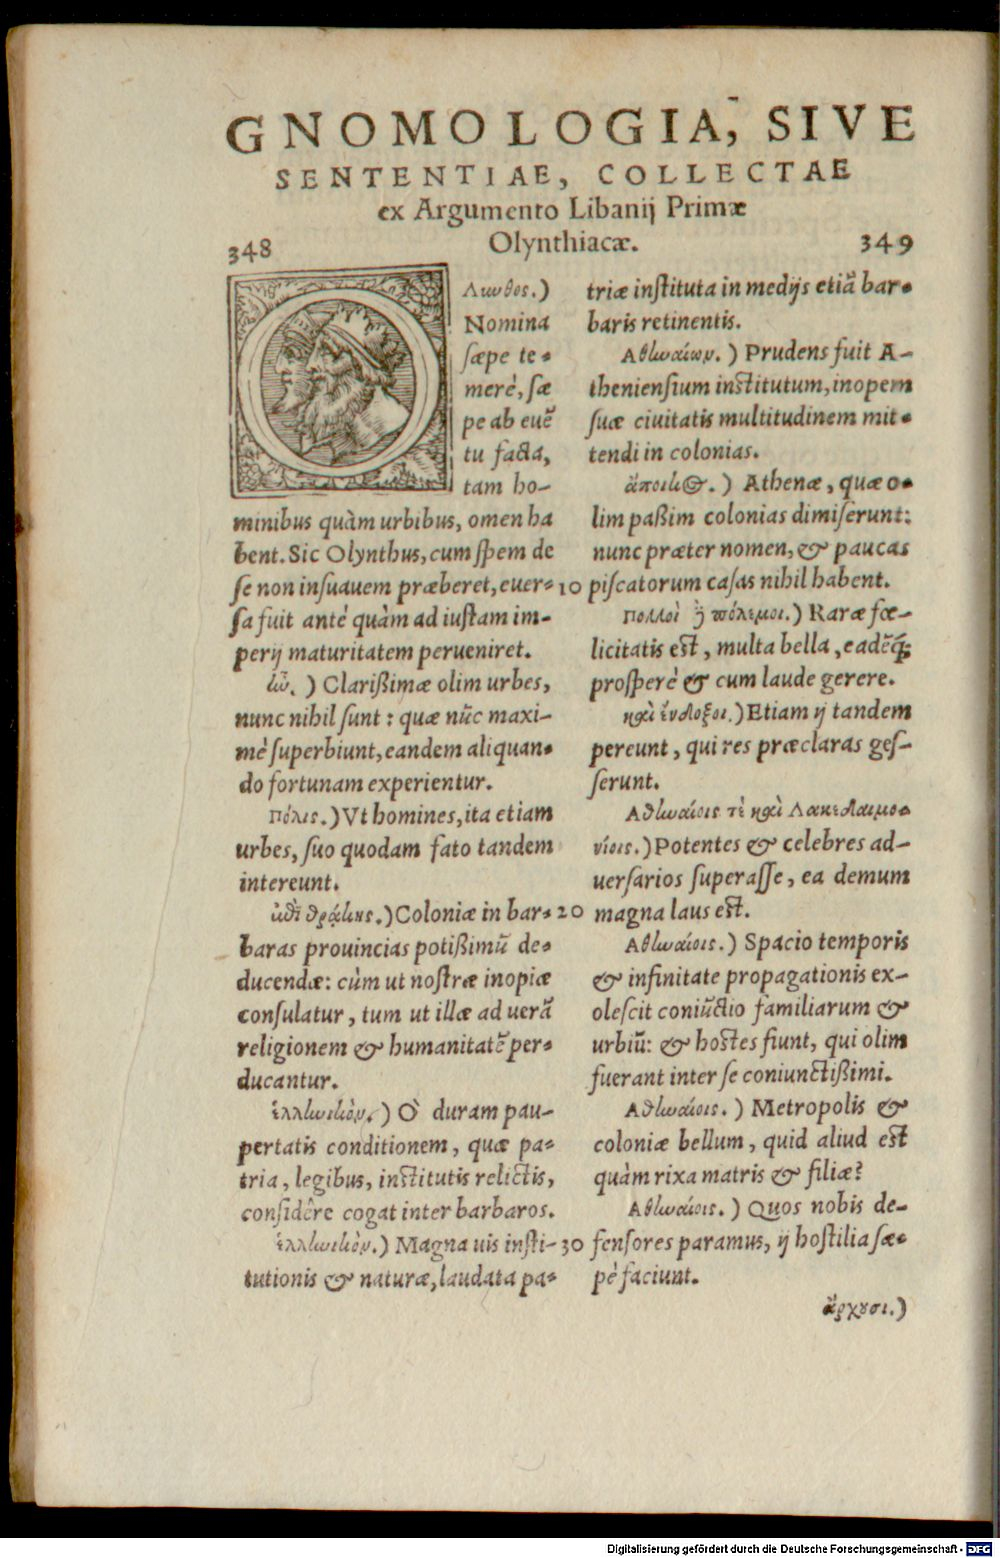 GNOMOLOGIA, SIVE
SENTENTIAE, COLLECTAE
ex Argumento Libanij Primæ
Olynthiacæ.
348
Λιωθος.)
Nomina
sæpe te-
merè, sæ
pe ab euē
tu facta,
tam ho-
minibus quàm urbibus, omen ha
bent. Sic Olynthus, cum spem de
se non insuauem præberet, euer-
sa fuit antè quàm ad iustam im-
perij maturitatem perueniret.
ἰῶ. ) Clarißimæ olim urbes,
nunc nihil sunt: quæ nūc maxi-
mè superbiunt, eandem aliquan-
do fortunam experientur.
πόλις.) Vt homines, ita etiam
urbes, suo quodam fato tandem
intereunt.
ἐπὶ θρᾴκης.) Coloniæ in bar-
baras prouincias potißimū de-
ducendæ: cùm ut nostræ inopiæ
consulatur, tum ut illæ ad uerā
religionem & humanitatē per-
ducantur.
ἑλληνικὸν.) Ô duram pau-
pertatis conditionem, quæ pa-
tria, legibus, institutis relictis,
considêre cogat inter barbaros.
ἑλληνικὸν.) Magna uis insti-
tutionis & naturæ, laudata pa-
10
20
30
349
triæ instituta in medijs etiā bar-
baris retinentis.
Ἀθηναίων.) Prudens fuit A-
theniensium institutum, inopem
suæ ciuitatis multitudinem mit-
tendi in colonias.
ἄποικος.) Athenæ, quæ o-
lim paßim colonias dimiserunt:
nunc præter nomen, & paucas
piscatorum casas nihil habent.
πολλοὶ δὲ πόλεμοι.) Raræ fœ-
licitatis est, multa bella, eadēq́;
prosperè & cum laude gerere.
καὶ ἔνδοξοι.) Etiam ij tandem
pereunt, qui res præclaras ges-
serunt.
Ἀθηναίοις τὲ καὶ Λακεδαιμο-
νίοις.) Potentes & celebres ad-
uersarios superasse, ea demum
magna laus est.
Ἀθηναίοις.) Spacio temporis
& infinitate propagationis ex-
olescit coniūctio familiarum &
urbiū: & hostes fiunt, qui olim
fuerant inter se coniunctißimi.
Ἀθηναίοις.) Metropolis &
coloniæ bellum, quid aliud est
quàm rixa matris & filiæ?
Ἀθηναίοις.) Quos nobis de-
fensores paramus, ij hostilia sæ-
pè faciunt.
ἄρχουσι.)
Digitalisierung gefördert durch die Deutsche Forschungsgemeinschaft - DFG